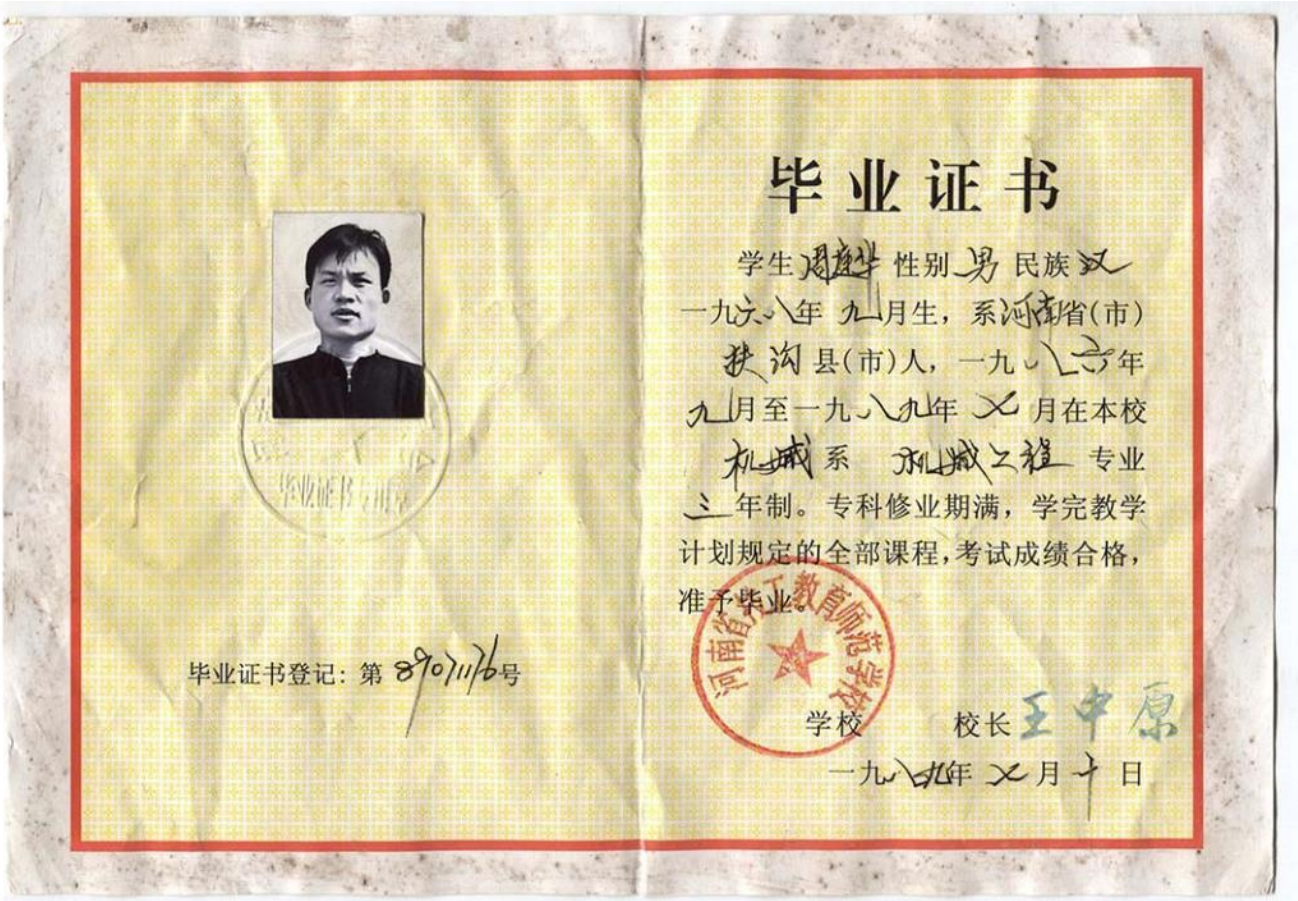 毕业证书登记：第89071176号
毕业证书专用章
毕业证书
学生周建华性别男民族汉
一九六八年九月生，系河南省(市)
扶沟县(市)人，一九八六年
九月至一九八九年七月在本校
机械系 机械工程专业
三年制。专科修业期满，学完教学
计划规定的全部课程，考试成绩合格，
准予毕业。
河南省劳工教育师范学校
学校 校长王中原
一九八九年七月十日